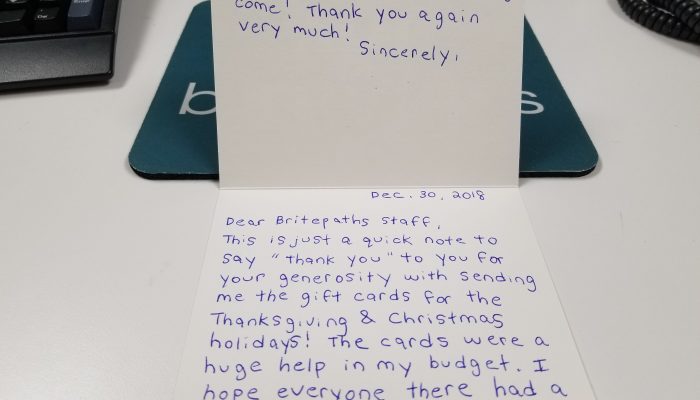 come! Thank you again
very much!
Sincerely,
b
s
Dec. 30, 2018
Dear Britepaths Staff,
This is just a quick note to
say "thank you" to you for
your generosity with sending
me the gift cards for the
Thanksgiving & Christmas
holidays! The cards were a
huge help in my budget. I
hope everyone there had a